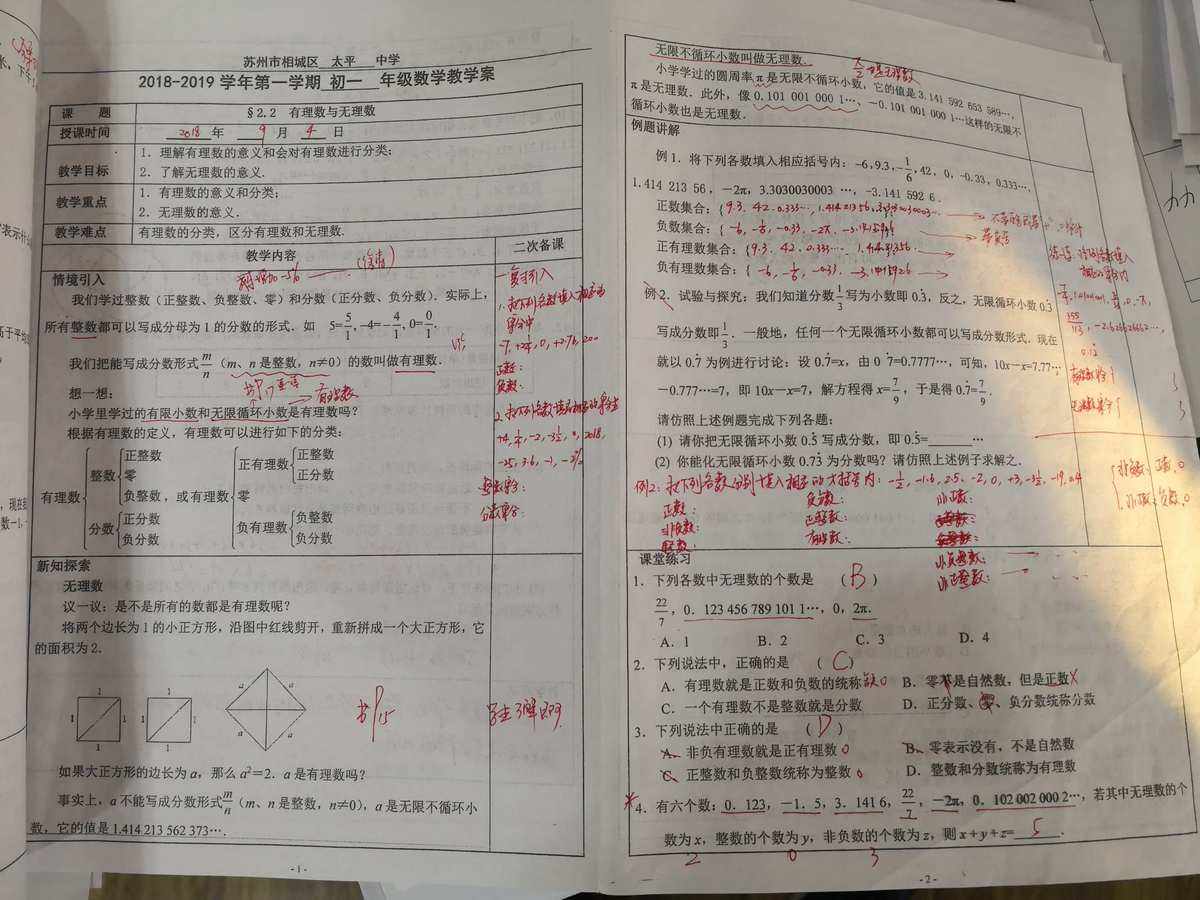 苏州市相城区 太平 中学
2018-2019 学年第一学期 初一 年级数学教学案
课 题 §2.2 有理数与无理数
授课时间 2018 年 9 月 4 日
教学目标 1. 理解有理数的意义和会对有理数进行分类;
2. 了解无理数的意义.
教学重点 1. 有理数的意义和分类;
2. 无理数的意义.
教学难点 有理数的分类,区分有理数和无理数.
教学内容 二次备课
情境引入
我们学过整数(正整数、负整数、零)和分数(正分数、负分数).实际上,
所有整数都可以写成分母为 1 的分数的形式. 如 5=5/1,-4=-4/1,0=0/1,
我们把能写成分数形式 m/n(m、n 是整数,n≠0)的数叫做有理数.
想一想:
小学里学过的有限小数和无限循环小数是有理数吗?
根据有理数的定义,有理数可以进行如下的分类:
有理数 { 整数 { 正整数 零 负整数 分数 { 正分数 负分数
,或有理数 { 正有理数 { 正整数 正分数 零 负有理数 { 负整数 负分数
一复习引入
1. 把下列各数填入相应的
正数:
负数:
+4, -2, -3½, 0, 2018,
-25, 3.6, -1,
整数集合:
分数集合:
新知探索
无理数
议一议:是不是所有的数都是有理数呢?
将两个边长为 1 的小正方形,沿图中红线剪开,重新拼成一个大正方形,它
的面积为 2.
1 1 a a
1 1
1 1 a a
书P15
学生了解即可
如果大正方形的边长为 a,那么 a²=2. a 是有理数吗?
事实上,a 不能写成分数形式 m/n(m、n 是整数,n≠0),a 是无限不循环小
数,它的值是 1.414 213 562 373….
- 1 -
无限不循环小数叫做无理数.
小学学过的圆周率 π 是无限不循环小数,它的值是 3.141 592 653 589…,
π 是无理数. 此外,像 0.101 001 000 1…,-0.101 001 000 1…这样的无限不
循环小数也是无理数.
例题讲解
例 1. 将下列各数填入相应括号内:-6,9.3,-1/6,42,0,-0.33,0.333…,
1.414 213 56,-2π,3.3030030003 …,-3.141 592 6.
正数集合:{9.3, 42, 0.333…, 1.41421356, 3.3030030003…
负数集合:{-6, -1/6, -0.33, -2π, -3.1415926
正有理数集合:{9.3, 42, 0.333… 1.41421356.
负有理数集合:{ -6, -1/6, -0.33, -3.1415926
例 2. 试验与探究:我们知道分数 1/3 写为小数即 0.3̇,反之,无限循环小数 0.3̇
写成分数即 1/3. 一般地,任何一个无限循环小数都可以写成分数形式. 现在
就以 0.7̇ 为例进行讨论:设 0.7̇=x,由 0.7̇=0.7777…,可知,10x-x=7.77…
-0.777…=7,即 10x-x=7,解方程得 x=7/9,于是得 0.7̇=7/9.
请仿照上述例题完成下列各题:
(1) 请你把无限循环小数 0.5̇ 写成分数,即 0.5̇=______…
(2) 你能化无限循环小数 0.7̇3̇ 为分数吗?请仿照上述例子求解之.
例2:把下列各数分别填入相应的大括号内:-½, -1.6, 2.5, -2, 0, +3, -3½, -19, 0.4
正数: 负数: 非正数:
非负数: 正整数:
整数: 有理数:
非负整数:
非正整数:
课堂练习
1. 下列各数中无理数的个数是 ( B )
22/7,0. 123 456 789 101 1…,0,2π.
A. 1 B. 2 C. 3 D. 4
2. 下列说法中,正确的是 ( C )
A. 有理数就是正数和负数的统称 B. 零不是自然数,但是正数
C. 一个有理数不是整数就是分数 D. 正分数、零、负分数统称分数
3. 下列说法中正确的是 ( D )
A. 非负有理数就是正有理数 B. 零表示没有,不是自然数
C. 正整数和负整数统称为整数 D. 整数和分数统称为有理数
4. 有六个数:0. 123,-1. 5,3. 141 6,22/7,-2π,0. 102 002 000 2…,若其中无理数的个
数为 x,整数的个数为 y,非负数的个数为 z,则 x+y+z= 5 .
2 0 3
- 2 -